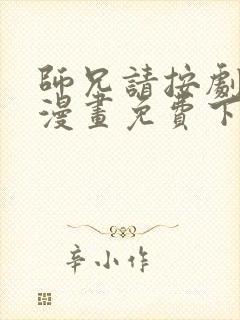 師兄請按劇
漫畫免費下
辛小作